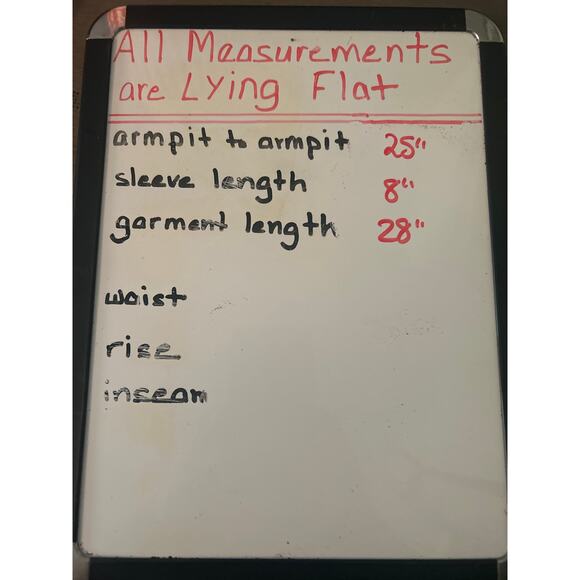 All Measurements
are Lying Flat
armpit to armpit 25"
sleeve length 8"
garment length 28"
waist
rise
inseam